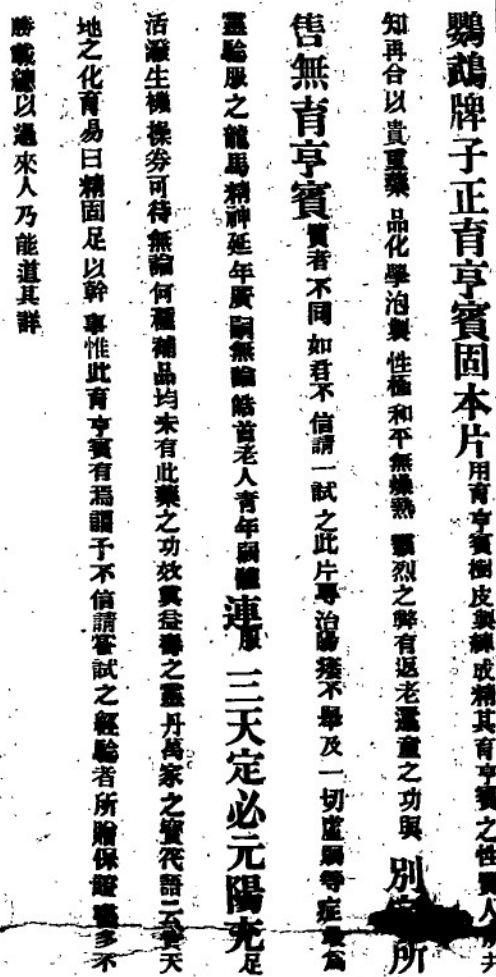 鸚鵡牌子正育亨賓固本片用育亨賓樹皮製練成精其育亨賓之性質人所共
知再合以貴重藥品化學泡製性極和平無燥熱猛烈之弊有返老還童之功與別所
售無育亨賓質者不同如君不信請一試之此片專治陽痿不舉及一切虛弱等症最爲
靈驗服之龍馬精神延年廣嗣無論皓首老人青年弱體連服三天定必元陽充足
活潑生機操券可待無論何種補品均未有此藥之功效眞益壽之靈丹萬家之寶筏語云賛天
地之化育易曰精固足以幹事惟此育亨賓有焉謂予不信請嘗試之經驗者所贈保證書多不
勝載總以過來人乃能道其詳